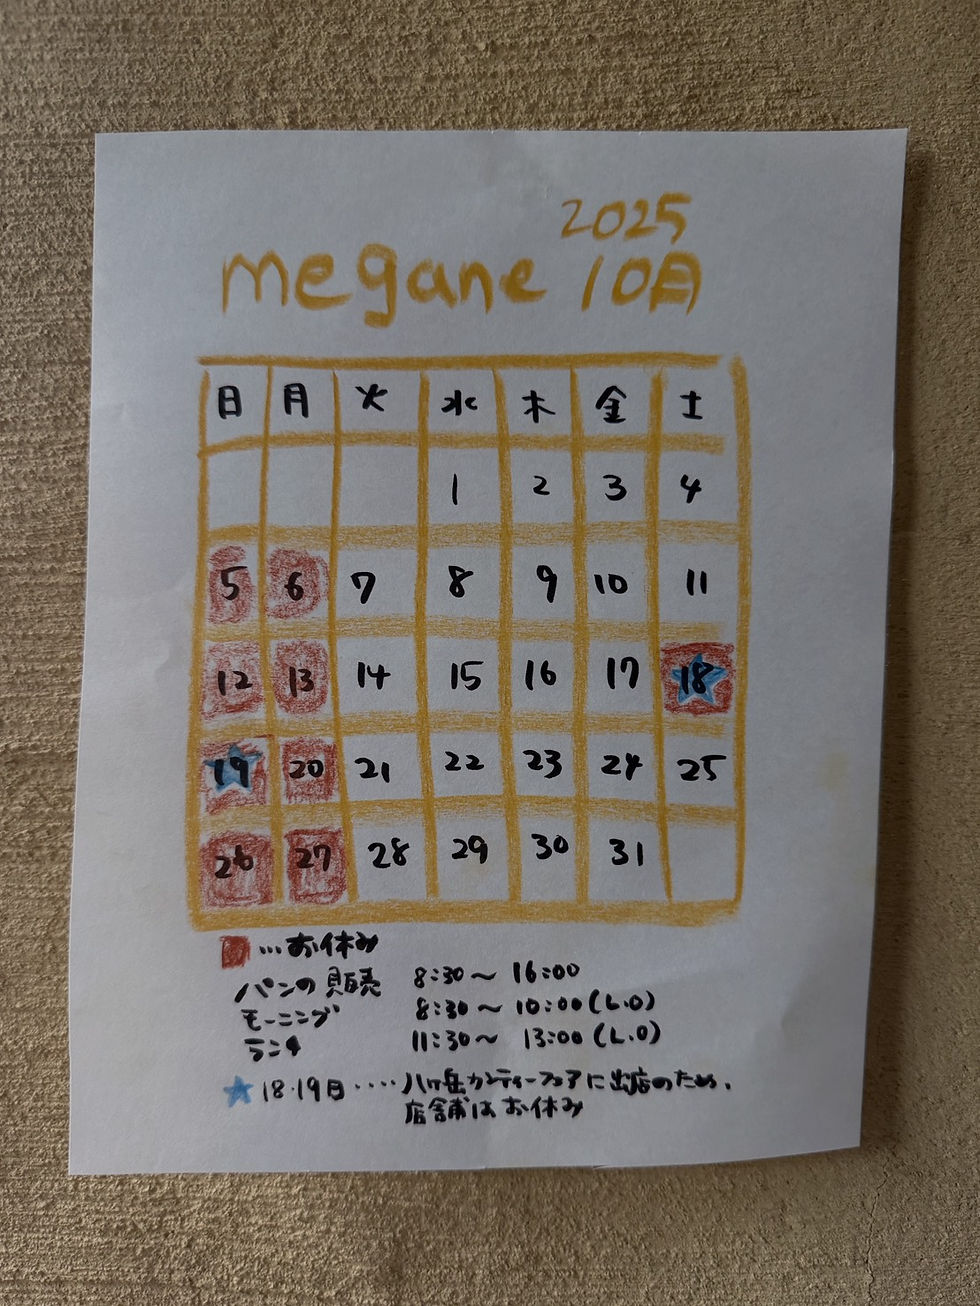 2025
megane 10月
日 月 火 水 木 金 土
1 2 3 4
5 6 7 8 9 10 11
12 13 14 15 16 17 18
19 20 21 22 23 24 25
26 27 28 29 30 31
…お休み
パンの販売 8:30〜16:00
モーニング 8:30〜10:00(L.O)
ランチ 11:30〜13:00(L.O)
★18・19日‥‥八ヶ岳カンティーフェアに出店のため、
店舗はお休み